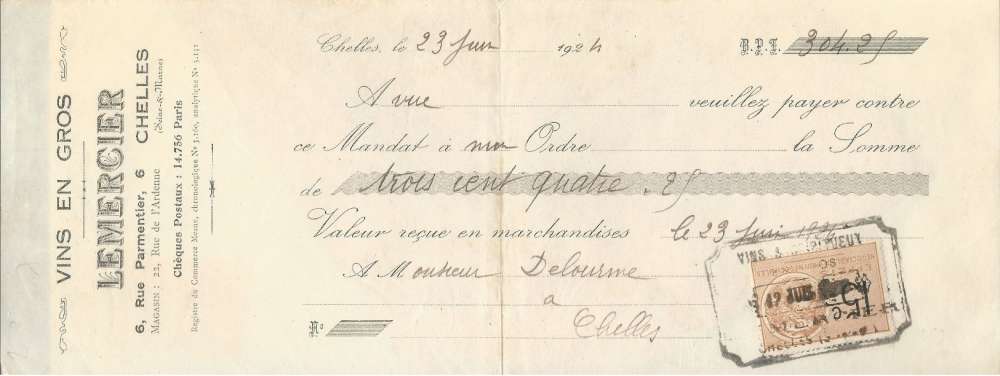 VINS EN GROS
LEMERCIER
6, Rue Parmentier, 6
CHELLES
MAGASIN : 22, Rue de l'Ardenne
(Seine-&-Marne)
Chèques Postaux : 14.756 Paris
Registre du Commerce Meaux, chronologique No 5.160, analytique No 5.151
Chelles, le 23 Juin 1924
B.P.F. 304.25
A vue veuillez payer contre
ce Mandat à mon Ordre la Somme
de trois cent quatre . 25
Valeur reçue en marchandises le 23 Juin 1924
A Monsieur Delourme
a
No Chelles